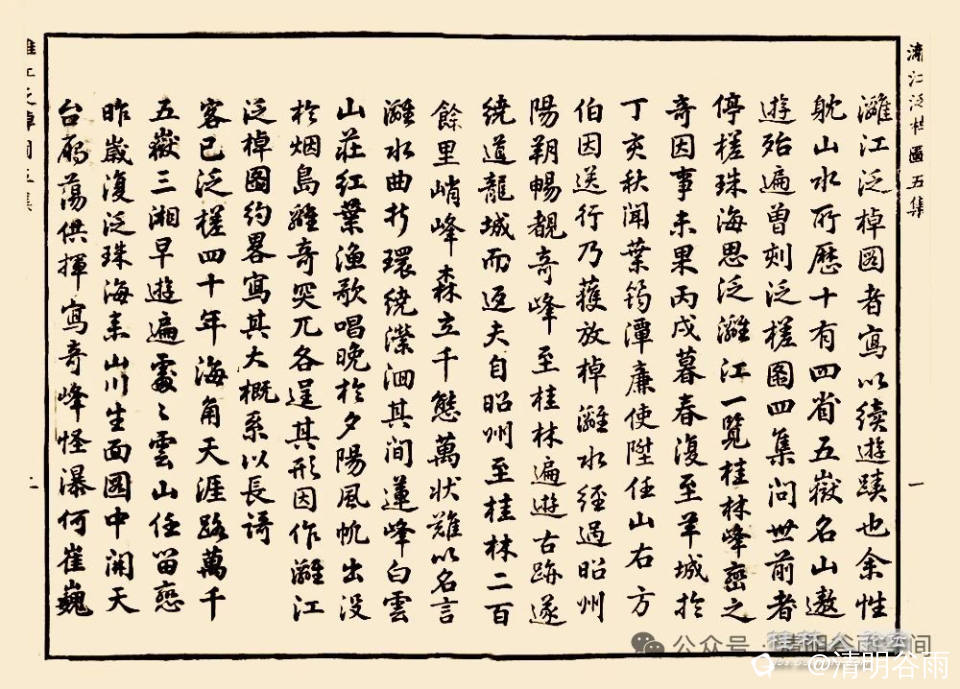 漓江泛棹圖五集
灕江泛棹圖者寫以續遊蹟也余性
躭山水所歷十有四省五嶽名山遨
遊殆遍曾刻泛槎圖四集問世前者
停槎珠海思泛灕江一覽桂林峰巒之
奇因事未果丙戌暮春復至羊城於
丁亥秋聞葉筠潭廉使陞任山右方
伯因送行乃獲放棹灕水經過昭州
陽朔暢觀奇峰至桂林遍遊古跡遂
繞道龍城而返夫自昭州至桂林二百
餘里峭峰森立千態萬狀難以名言
灕水曲折環繞瀠洄其間蓮峰白雲
山莊紅葉漁歌唱晚於夕陽風帆出没
於烟島離奇突兀各逞其形因作灕江
泛棹圖約畧寫其大概系以長語
客已泛槎四十年海角天涯路萬千
五嶽三湘早遊遍處〻雲山任留戀
昨歲復泛珠海来山川生面圖中開天
台雁蕩供揮寫奇峰怪瀑何崔巍
一
公众号·清明谷雨空间
@清明谷雨